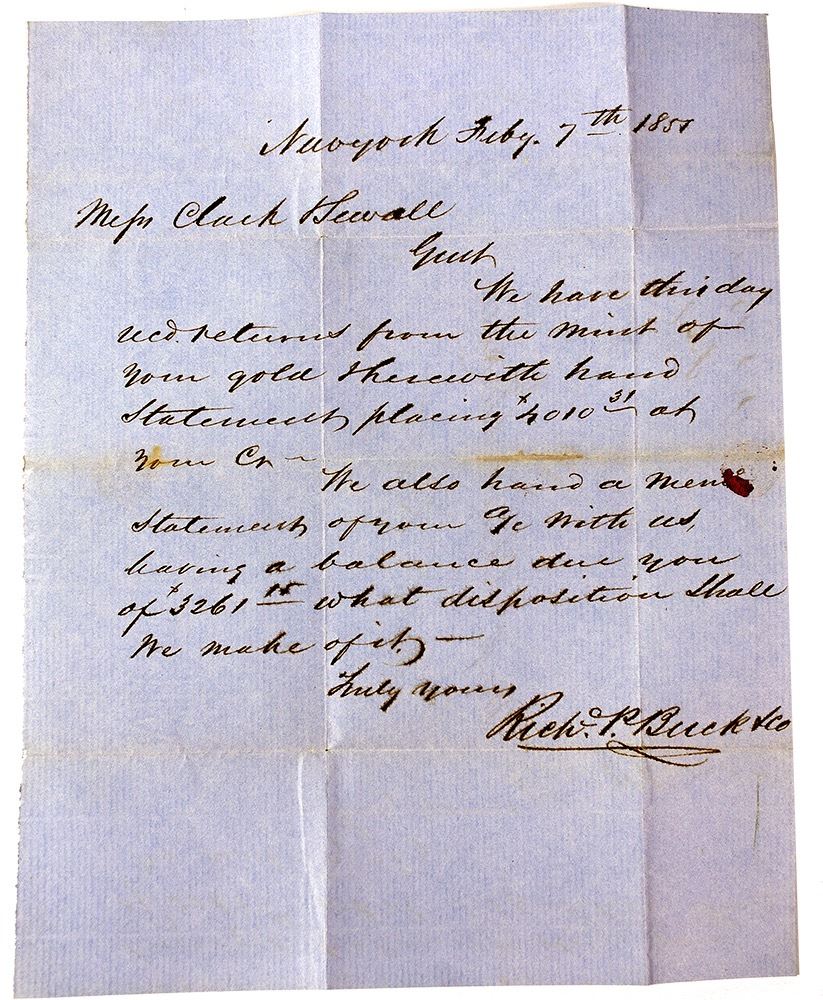 Newyork Feby. 7th 1851
Mess Clark & Sewall
Gent
We have this day
recd. returns from the mint of
your gold & herewith hand
Statement, placing $4010 31 at
your Cr
We also hand a Memo
Statement of your a/c with us,
having a balance due you
of $3261 15 what disposition shall
We make of it,
Truly yours
Richd. P. Buck & Co